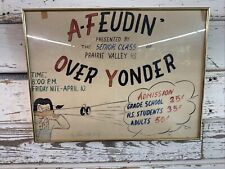 A-FEUDIN'
PRESENTED BY
THE SENIOR CLASS OF
PRAIRIE VALLEY HS
OVER YONDER
TIME:
8:00 P.M.
FRIDAY NITE-APRIL 10
ADMISSION
GRADE SCHOOL 25¢
H.S. STUDENTS 35¢
ADULTS 50¢